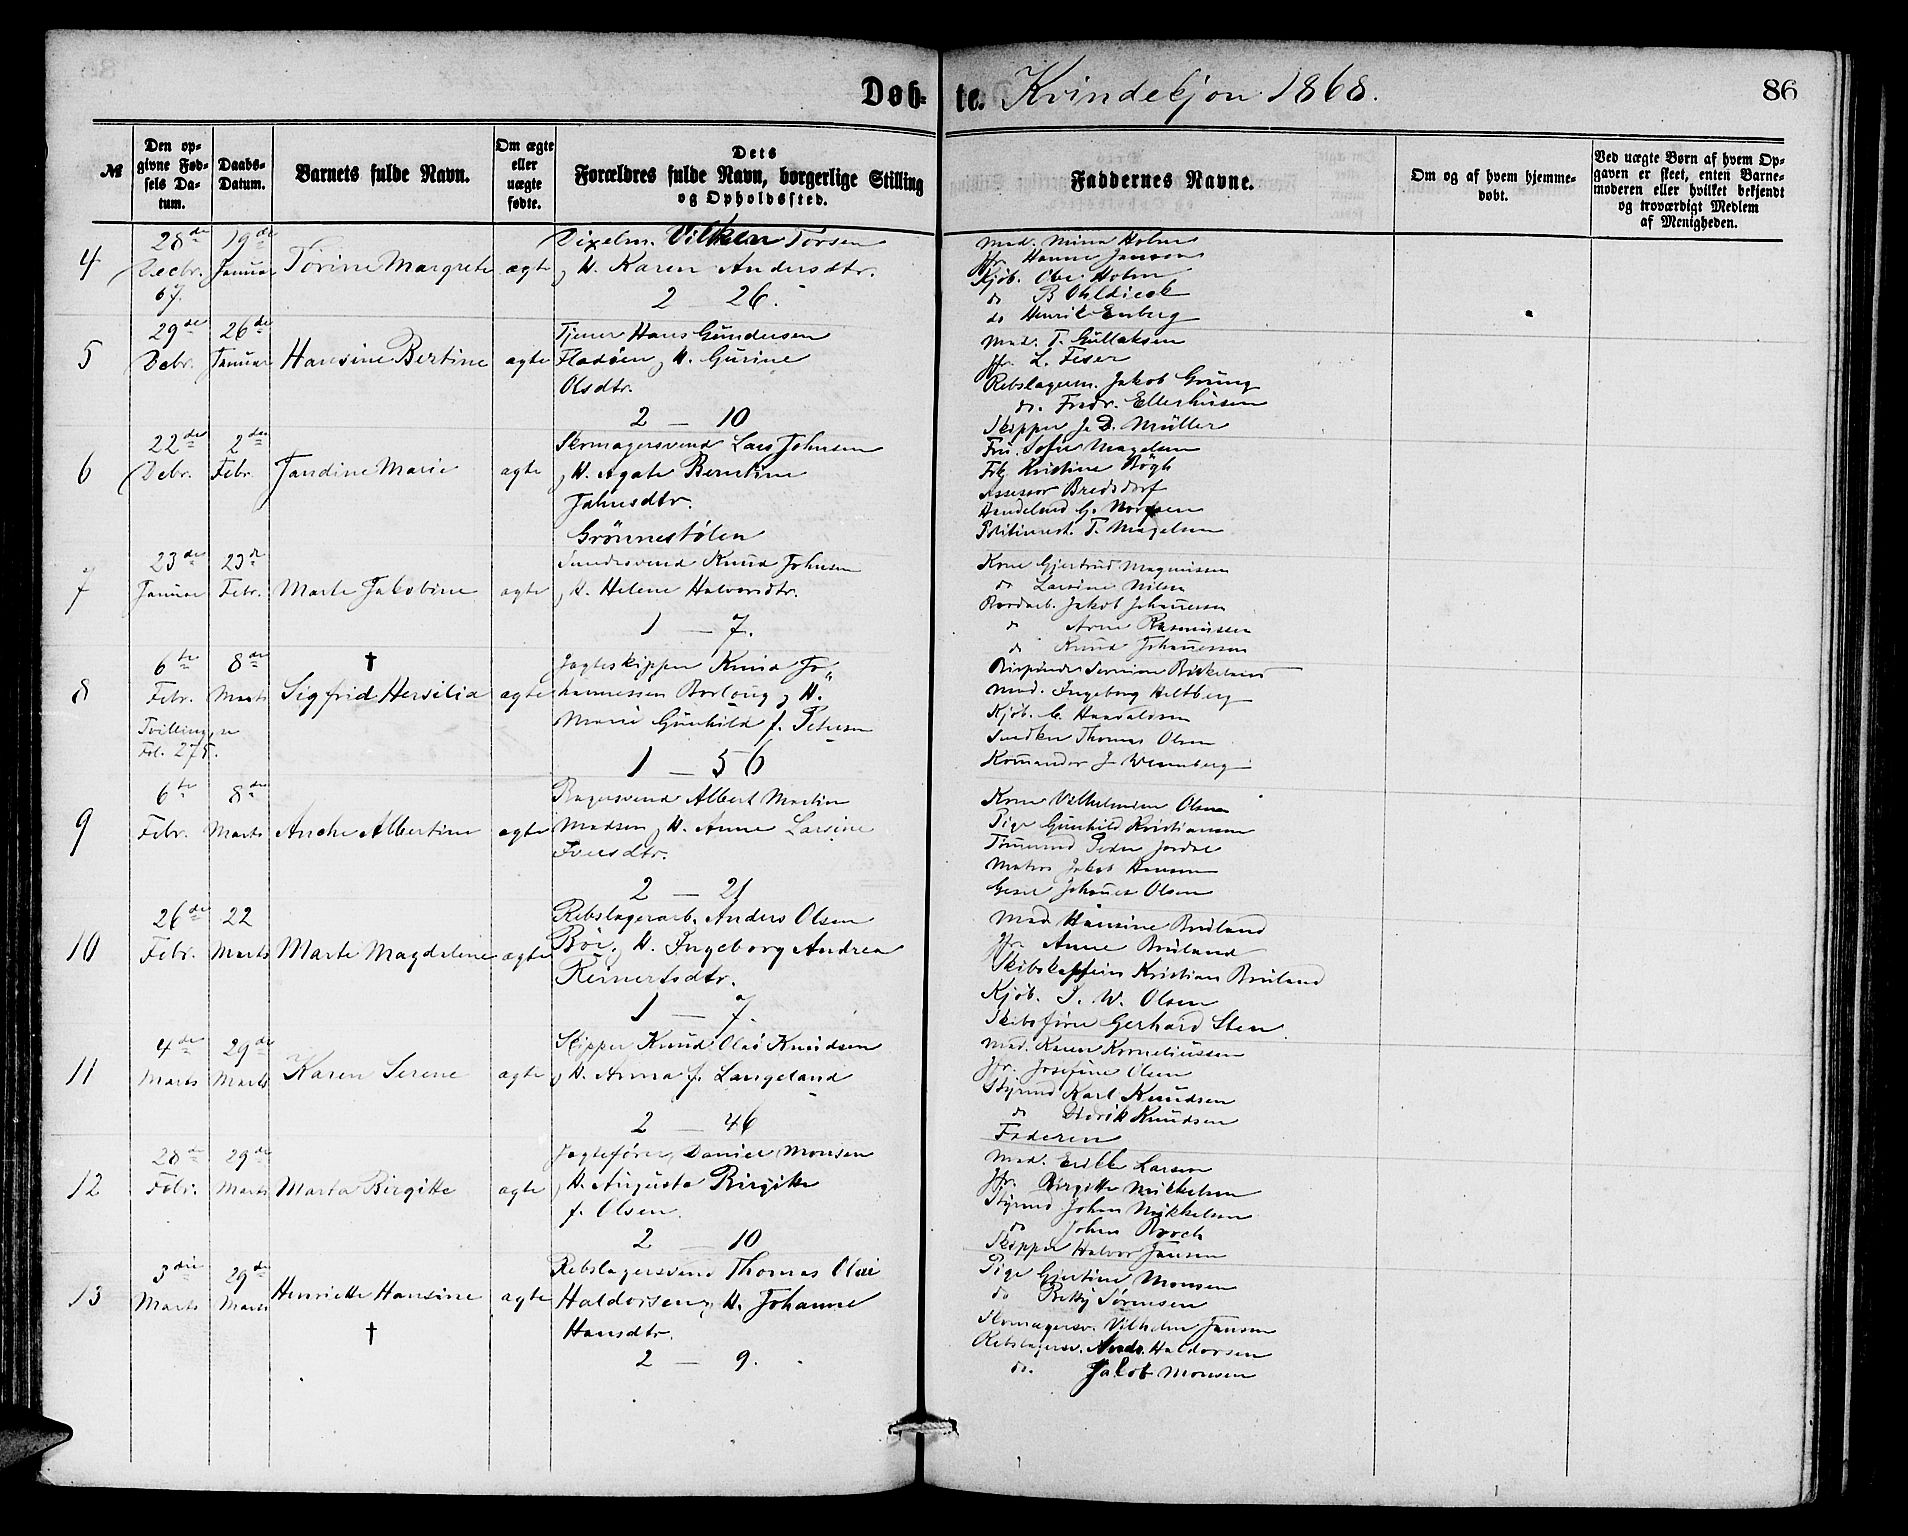 Døb- te. Kvindekjøn 1868. 86
№
Den op-
givne Fød-
sels Da-
tum.
Daabs-
Datum.
Barnets fulde Navn.
Om ægte
eller
uægte
fødte.
Dets
Forældres fulde Navn, borgerlige Stilling
og Opholdssted.
Faddernes Navne.
Om og af hvem hjemme-
døbt.
Ved uægte Børn af hvem Op-
gaven er skeet, enten Barne-
moderen eller hvilket bekjendt
og troværdigt Medlem
af Menigheden.
4
28de
Decbr.
67.
19de
Januar
Torine Margrete
ægte
Vilken Torsen
H. Karen Andersdtr.
2 — 26.
Mad. Mina Holm
Jfr. Hanne Jansson
Kjøb. Ole Holm
do B Ohldieck
do Henrik Enberg
5
29de
Debr.
26de
Januar
Hansine Bertine
ægte
Tjener Hans Gundersen
Fladøen, H. Gurine
Olsdtr.
2 — 10
Mad. T. Gullaksen
Jfr. L. Feser
Rebslagerm. Jakob Grung
do. Fredr. Ellerhusen
Skipper J. D. Müller
6
22de
Debr.
2de
Febr.
Jandine Marie
ægte
Skomagersvend Lars Johnsen
H. Agate Berntine
Jahnsdtr.
Grönnestølen
Fru. Sofie Magelsen
Frk Kristine Bögh
Assessor Bredsdorf
Politimest. T. Magelsen
7
23de
Januar
23de
Febr.
Marte Jakobine
ægte
Knud Johnsen
H. Helene Halvorsdtr.
1 — 7.
Kone Gjertrud Magnussen
do Larsine Nilsen
Jakob Johannessen
do Arne Rasmussen
do Knud Johannessen
8
6te
Febr.
Tvilling, se
Fol. 275.
8de
Marts
†
Sigfrid Hersilia
ægte
Jagteskipper Knud Jo-
hannessen Borlaug, H.
Marie Gunhild f. Petersen
1 — 56
Mad. Ingeborg Heltberg
Kjøb. C. Haavaldsen
Snedker Thomas Olsen
9
6te
Febr.
8de
Marts
Anche Albertine
ægte
Bagersvend Albert Martin
Madsen, H. Anne Larsine
Iversdtr.
2 — 21
Kone Vilhelmine Olsen
Pige Gunhild Kristiansen
Tömmermd Peder Jordal
Matros Jakob Hansen
Johannes Olsen
10
26de
Febr.
22
Marts
Marte Magdeline
ægte
Rebslagerarb. Anders Olsen
Böe, H. Ingeborg Andrea
Reinertsdtr.
1 — 7
Mad Hansine Bruland
Jfr. Anne Bruland
Skibskaptein Kristian Bruland
Kjøb. J. W. Olsen
Skibsförer Gerhard Sten
11
4de
Marts
29de
Marts
Karen Serene
ægte
Skipper Knud Olai Knudsen
H. Anna f. Langeland
2 — 46
Mad. Karen Korneliussen
Jfr. Josefine Olsen
Styrmd Karl Knudsen
do Didrik Knudsen
Faderen
12
28de
Febr.
29de
Marts
Marta Birgitte
ægte
Jagtefører Daniel Monsen
H. Augusta Birgitte
f. Olsen.
2 — 10
Mad. Erikke Larsen
Jfr. Birgitte Mikkelsen
Styrmd Johan Mikkelsen
do Johan Broch
Skipper Halvor Jansen
13
3die
Marts
29de
Marts
Henriette Hansine
†
ægte
Rebslagersvend Thomas Olai
Haldorsen, H. Johanne
Hansdtr.
2 — 9.
Pige Gjertine Monsen
do Betsy Sörensen
Skomagersv. Vilhelm Jansen
Rebslagersv. Ands. Haldorsen
do. Jakob Monsen